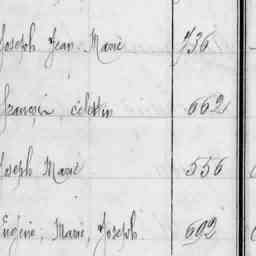 Joseph Jean Marie 736
François, célestin 662
Joseph Marie 556
Eugène, Marie, Joseph. 692